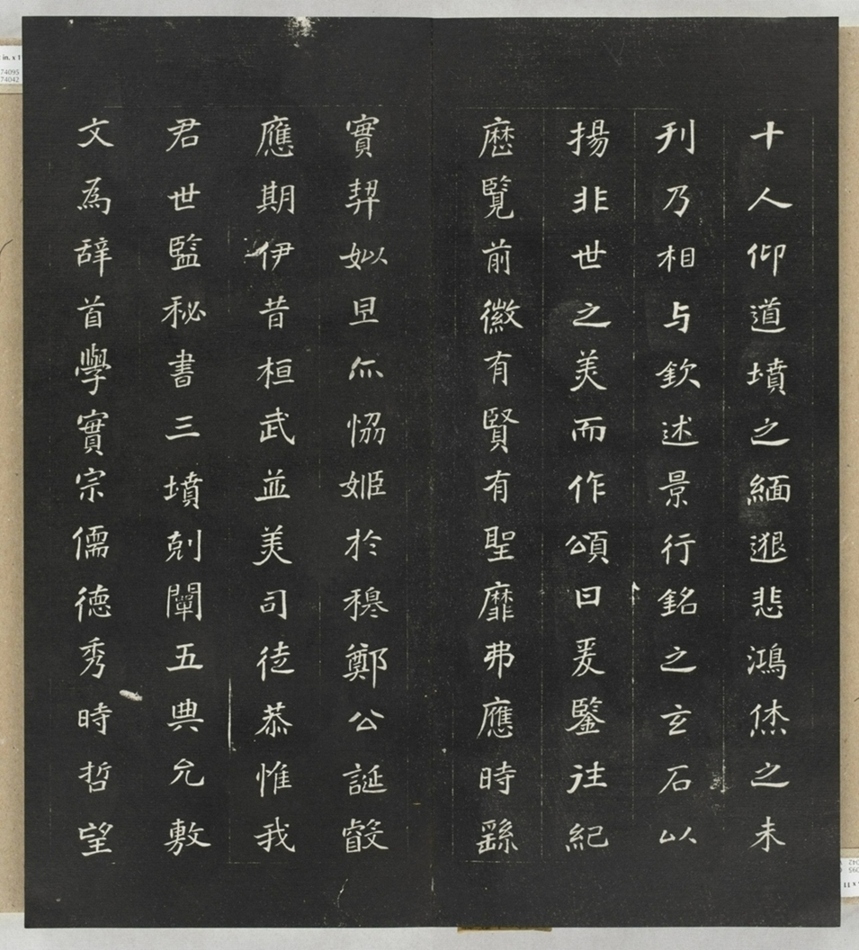 十人仰道墳之緬邈悲鴻烋之未
刊乃相与欽述景行銘之玄石以
揚非世之美而作頌曰爰鑒往紀
歷覽前徽有賢有聖靡弗應時繇
實契姒旦亦恊姬於穆鄭公誕睿
應期伊昔桓武並美司徒恭惟我
君世監秘書三墳剋闡五典允敷
文為辭首學實宗儒德秀時哲望